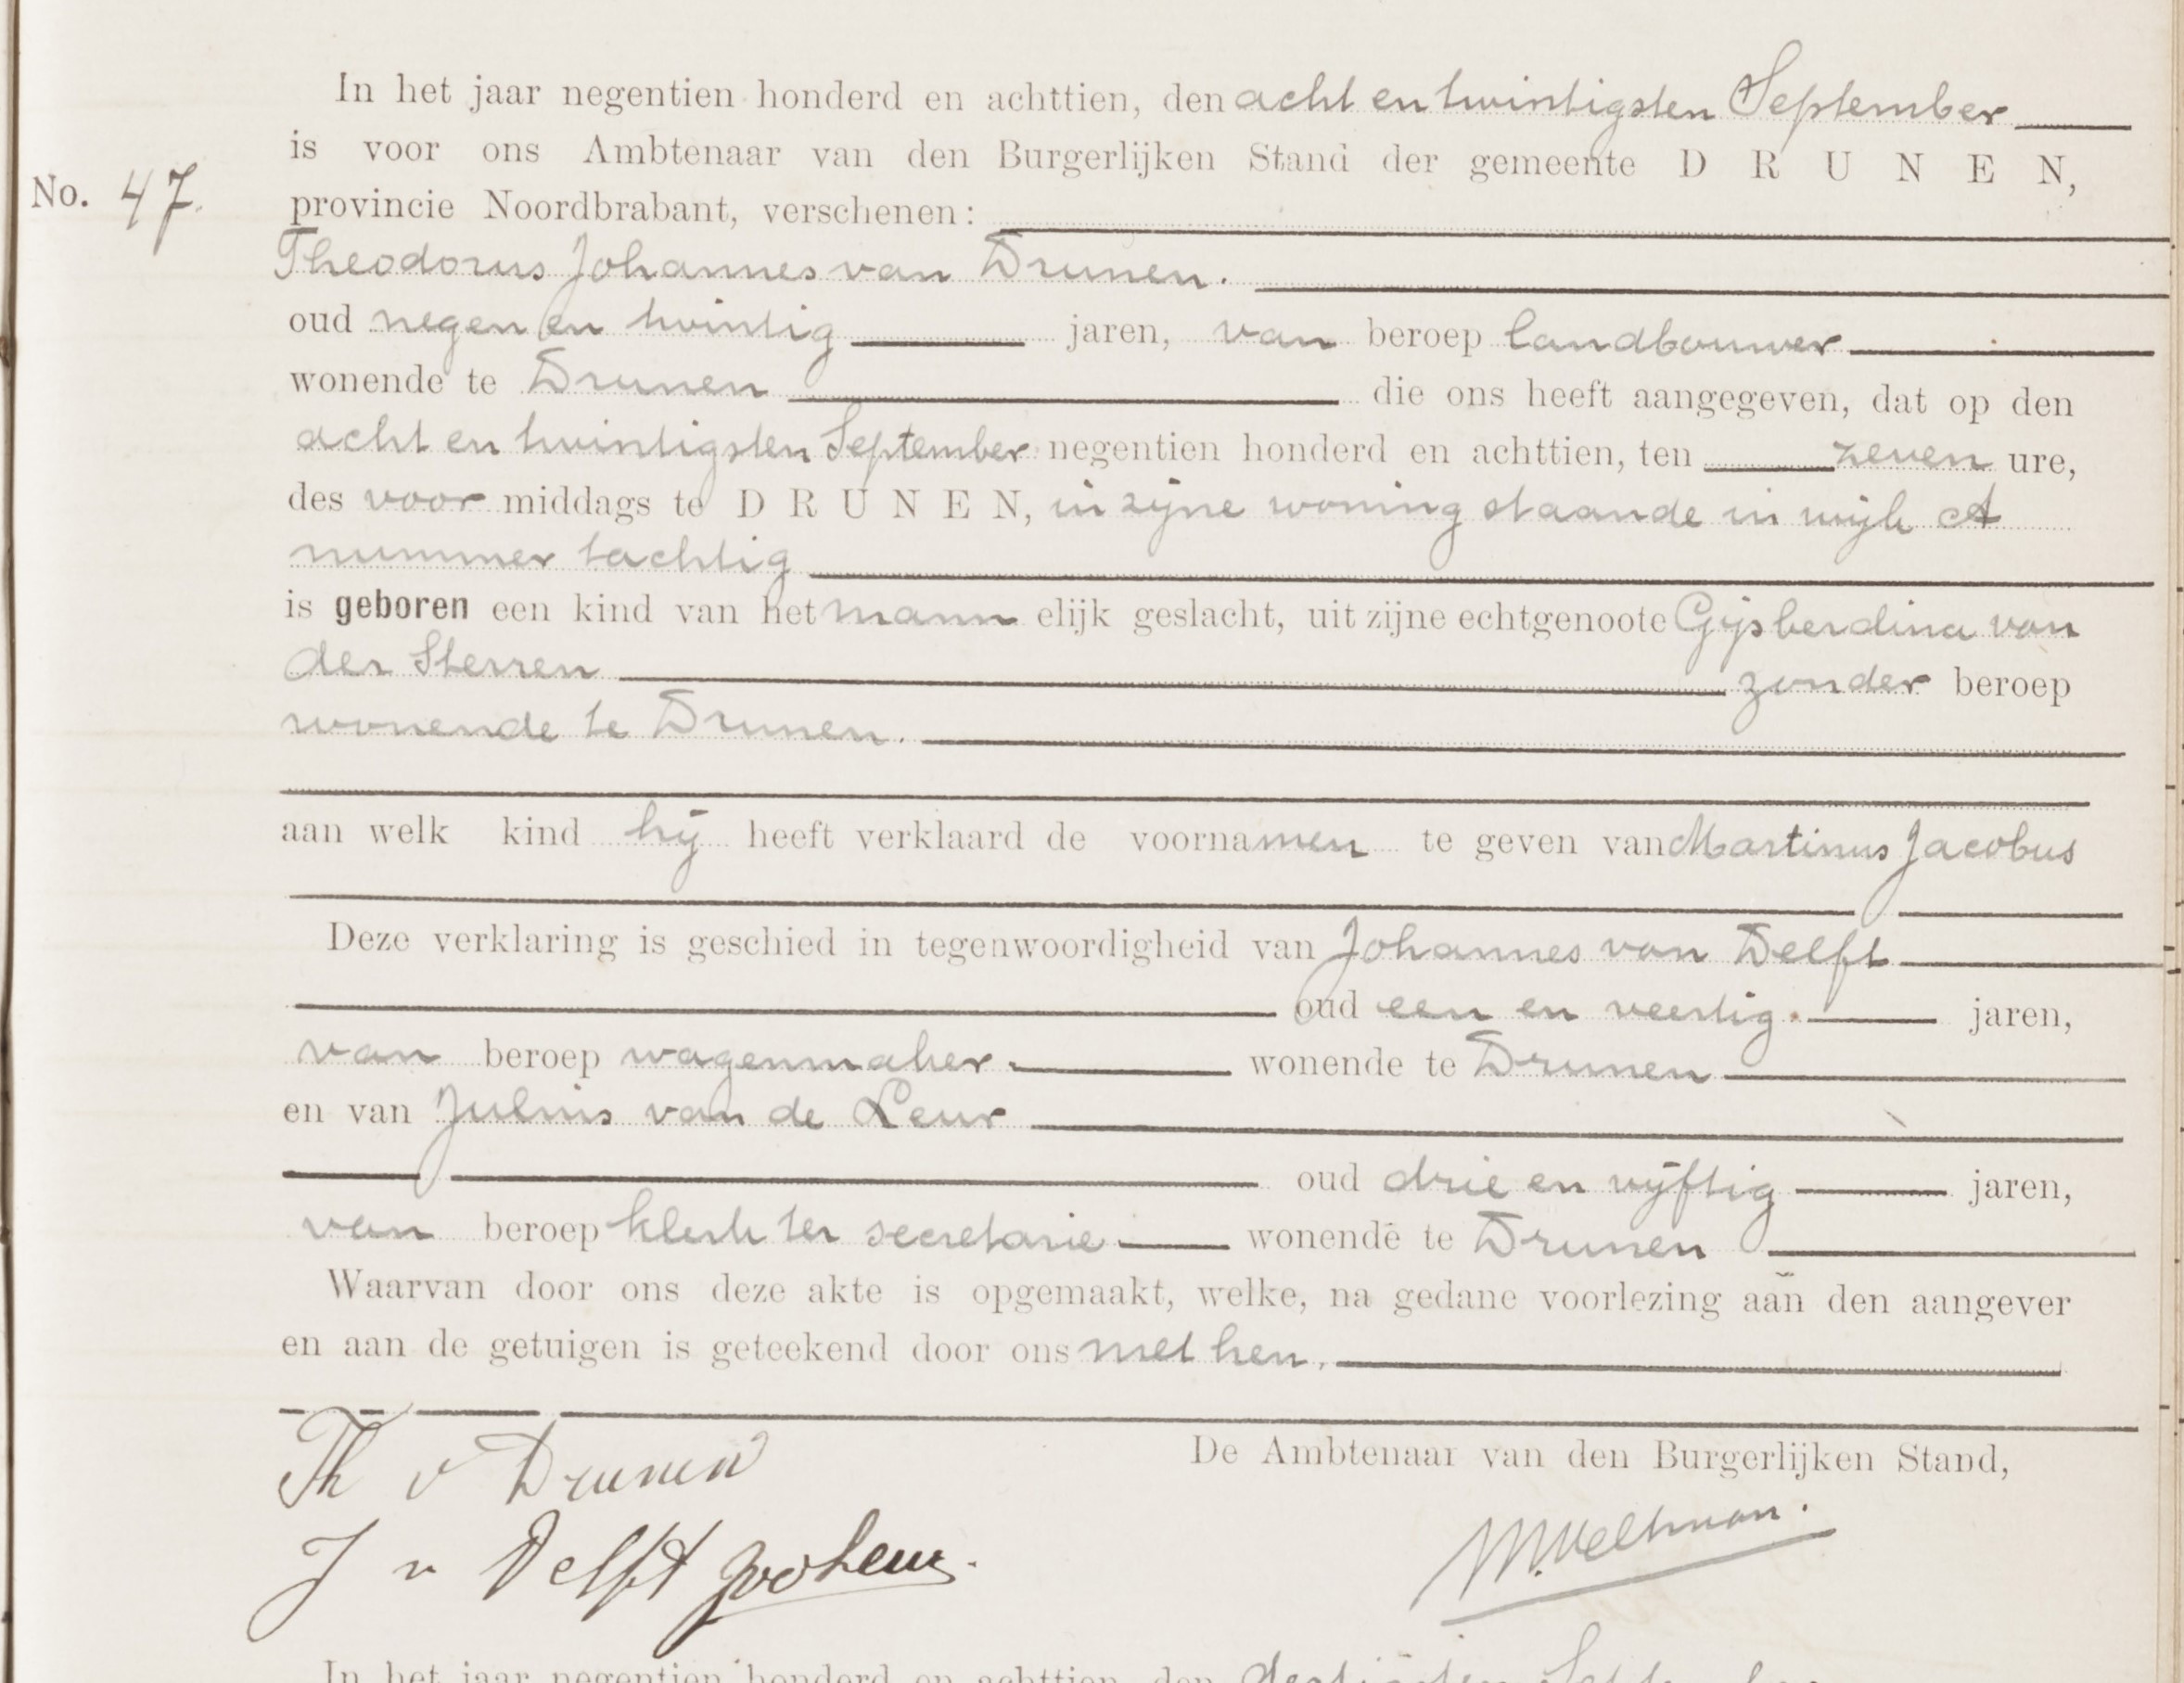 In het jaar negentien honderd en achttien, den acht en twintigsten September
is voor ons Ambtenaar van den Burgerlijken Stand der gemeente D R U N E N,
No. 47.
provincie Noordbrabant, verschenen:
Theodorus Johannes van Drunen.
oud negen en twintig jaren, van beroep landbouwer
wonende te Drunen die ons heeft aangegeven, dat op den
acht en twintigsten September negentien honderd en achttien, ten zeven ure,
des voor middags te D R U N E N, in zijne woning staande in wijk A
nummer tachtig
is geboren een kind van het mann elijk geslacht, uit zijne echtgenoote Gijsberdina van
der Sterren zonder beroep
wonende te Drunen.
aan welk kind hij heeft verklaard de voornamen te geven van Martinus Jacobus
Deze verklaring is geschied in tegenwoordigheid van Johannes van Delft
oud een en veertig. jaren,
van beroep wagenmaker. wonende te Drunen
en van Julius van de Leur
oud drie en vijftig jaren,
van beroep klerk ter secretarie. wonende te Drunen
Waarvan door ons deze akte is opgemaakt, welke, na gedane voorlezing aan den aangever
en aan de getuigen is geteekend door ons met hen.
Th v Drunen
De Ambtenaar van den Burgerlijken Stand,
J v Delft JvdLeur.
In het jaar negentien honderd en achttien, den